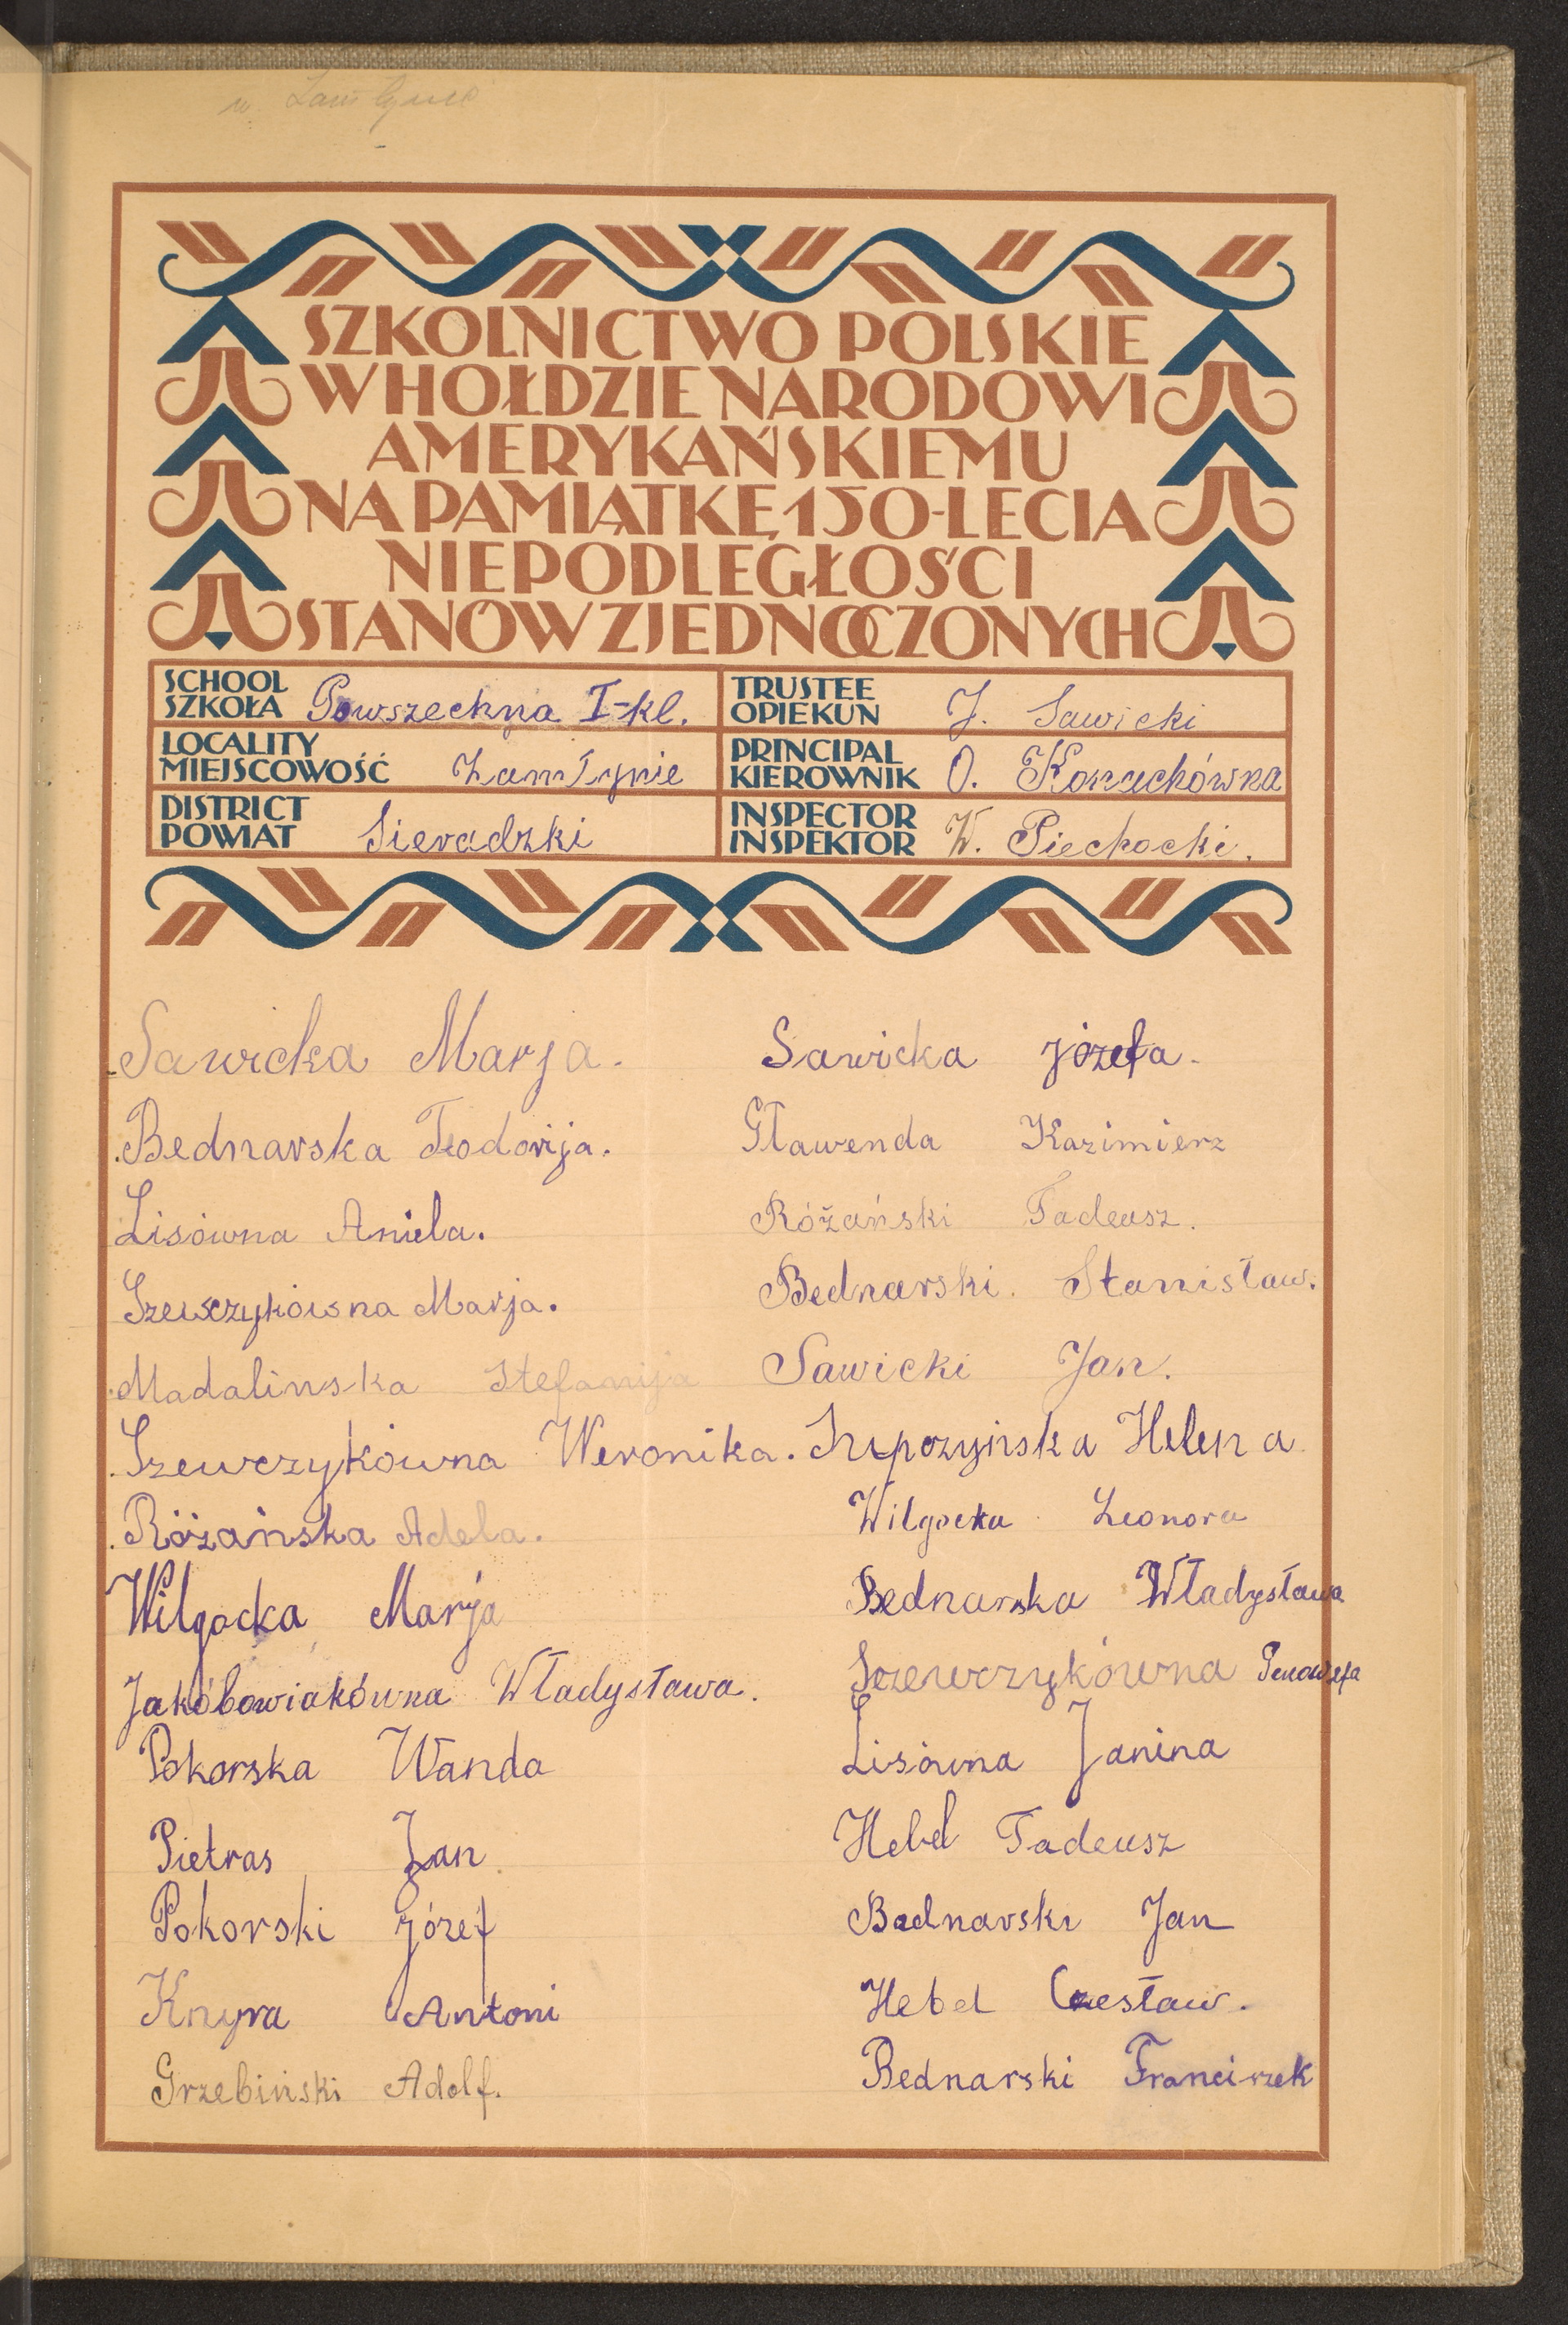 w Zamłynie
SZKOLNICTWO POLSKIE
W HOŁDZIE NARODOWI
AMERYKAŃSKIEMU
NA PAMIĄTKĘ 150-LECIA
NIEPODLEGŁOŚCI
STANÓW ZJEDNOCZONYCH
SCHOOL
SZKOŁA Powszechna I-kl.
TRUSTEE
OPIEKUN J. Sawicki
LOCALITY
MIEJSCOWOŚĆ Zamłynie
PRINCIPAL
KIEROWNIK O.
DISTRICT
POWIAT Sieradzki
INSPECTOR
INSPEKTOR W. Piechocki.
Sawicka Marja.
Bednarska Teodorija.
Lisówna Aniela.
Szewczykówna Marja.
Madalinska Stefanija
Szewczykówna Weronika.
Różańska Adela.
Wilgocka Marja
Jakóbowiakówna Władysława.
Pokorska Wanda
Pietras Jan
Pokorski Józef
Knyra Antoni
Grzebiński Adolf.
Sawicka Józefa.
Gławenda Kazimierz
Różański Tadeusz.
Bednarski. Stanisław.
Sawicki Jan.
Helena
Wilgocka Leonora
Bednarska Władysława
Szewczykówna
Lisówna Janina
Hebel Tadeusz
Bednarski Jan
Hebel Czesław.
Bednarski Franciszek